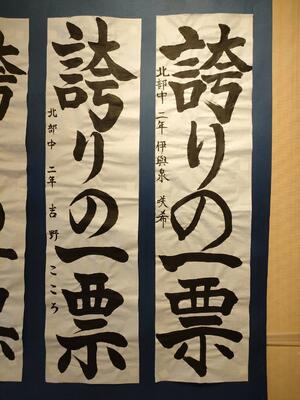 誇りの一票
北部中 二年 伊與泉 咲希
誇りの一票
北部中 二年 吉野 こころ
誇